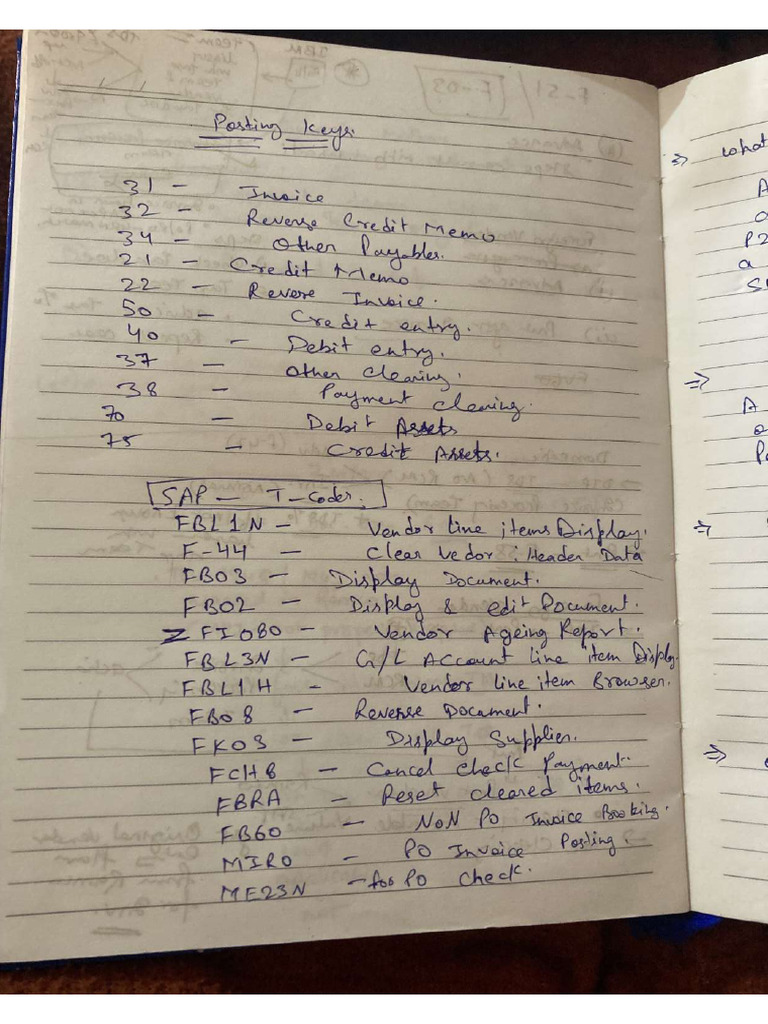 Posting Keys.
31 - Invoice
32 - Reverse Credit Memo
34 - Other Payables.
21 - Credit Memo
22 - Revere Invoice.
50 - Credit entry.
40 - Debit entry.
37 - Other Clearing.
38 - Payment Clearing.
70 - Debit Assets
75 - Credit Assets.
SAP - T-Codes.
FBL1N - Vendor line items Display.
F-44 - Clear Vedor : Header Data
FB03 - Display Document.
FB02 - Display & edit Document.
ZFI080 - Vendor Ageing Report.
FBL3N - G/L Account Line item Display.
FBL1H - Vendor line item Browser.
FB08 - Reverse Document.
FK03 - Display Supplier.
FCH8 - Cancel Check Payment.
FBRA - Reset Cleared items.
FB60 - NON PO Invoice Booking.
MIRO - PO Invoice Posting.
ME23N - for PO Check.
⇒ what
A
P2
a
⇒
A
⇒
⇒